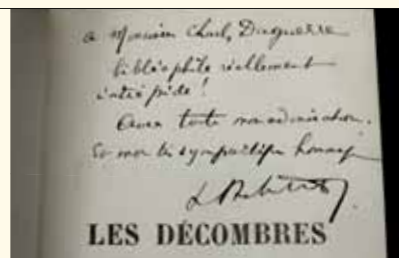 a Monsieur Charles Duguerre
bibliophile réellement
intrépide !
Avec toute mon admiration.
Et mon très sympathique hommage
LES DÉCOMBRES